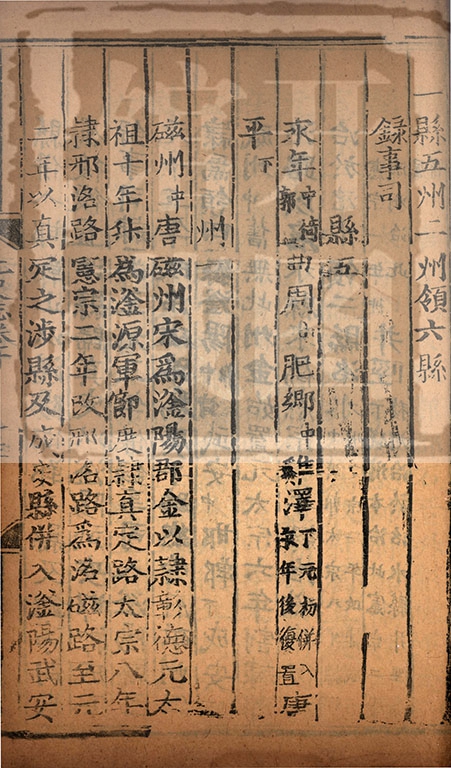 縣五州二州領六縣
錄事司
縣五
永年中倚郭曲周中肥鄉中雞澤下元初併入永年後復置廣
平下
州
磁州中唐磁州宋為滏陽郡金以隸彰德元太
祖十年升為滏源軍節度隸真定路太宗八年
隸邢洺路憲宗二年改邢洺路為洺磁路至元
二年以真定之涉縣及成安縣併入滏陽武安